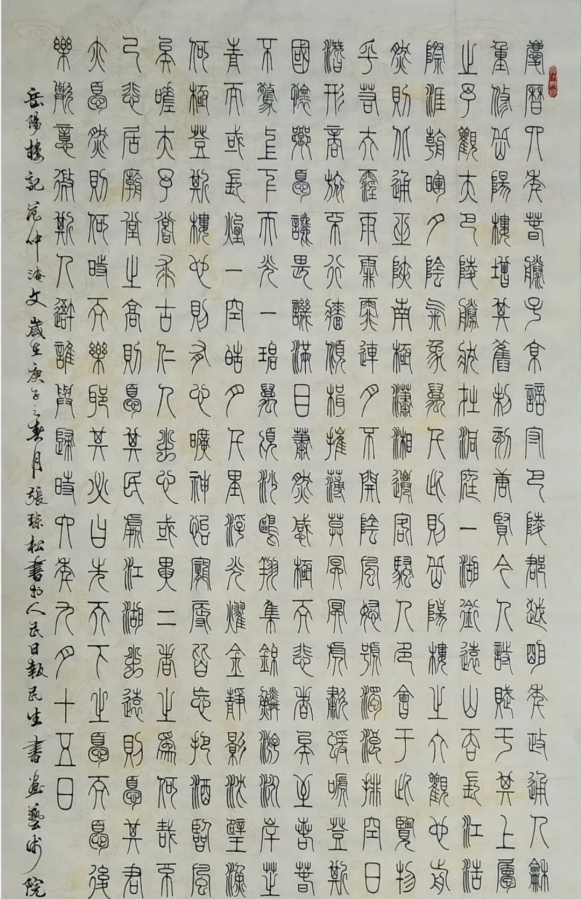 慶曆四年春滕子京謫守巴陵郡越明年政通人龢
重修岳陽樓增其舊制刻唐賢今人詩賦于其上屬
之予觀夫巴陵勝狀在洞庭一湖銜遠山吞長江浩
際涯朝暉夕陰氣象萬千此則岳陽樓之大觀也前
然則北通巫峽南極瀟湘遷客騷人多會于此覽物
乎若夫霪雨霏霏連月不開陰風怒號濁浪排空日
潛形商旅不行檣傾楫摧薄暮冥冥虎嘯猿啼登斯
國懷鄉憂讒畏譏滿目蕭然感極而悲者矣至若春
不驚上下天光一碧萬頃沙鷗翔集錦鱗游泳岸芷
青而或長煙一空皓月千里浮光耀金靜影沈璧漁
何極登斯樓也則有心曠神怡寵辱皆忘把酒臨風
矣嗟夫予嘗求古仁人之心或異二者之為何哉不
己悲居廟堂之高則憂其民處江湖之遠則憂其君
亦憂然則何時而樂耶其必曰先天下之憂而憂後
樂歟噫微斯人吾誰與歸時六年九月十五日
岳陽樓記范仲淹文歲在庚子之春月張琮松書於人民日報民生書畫藝術院